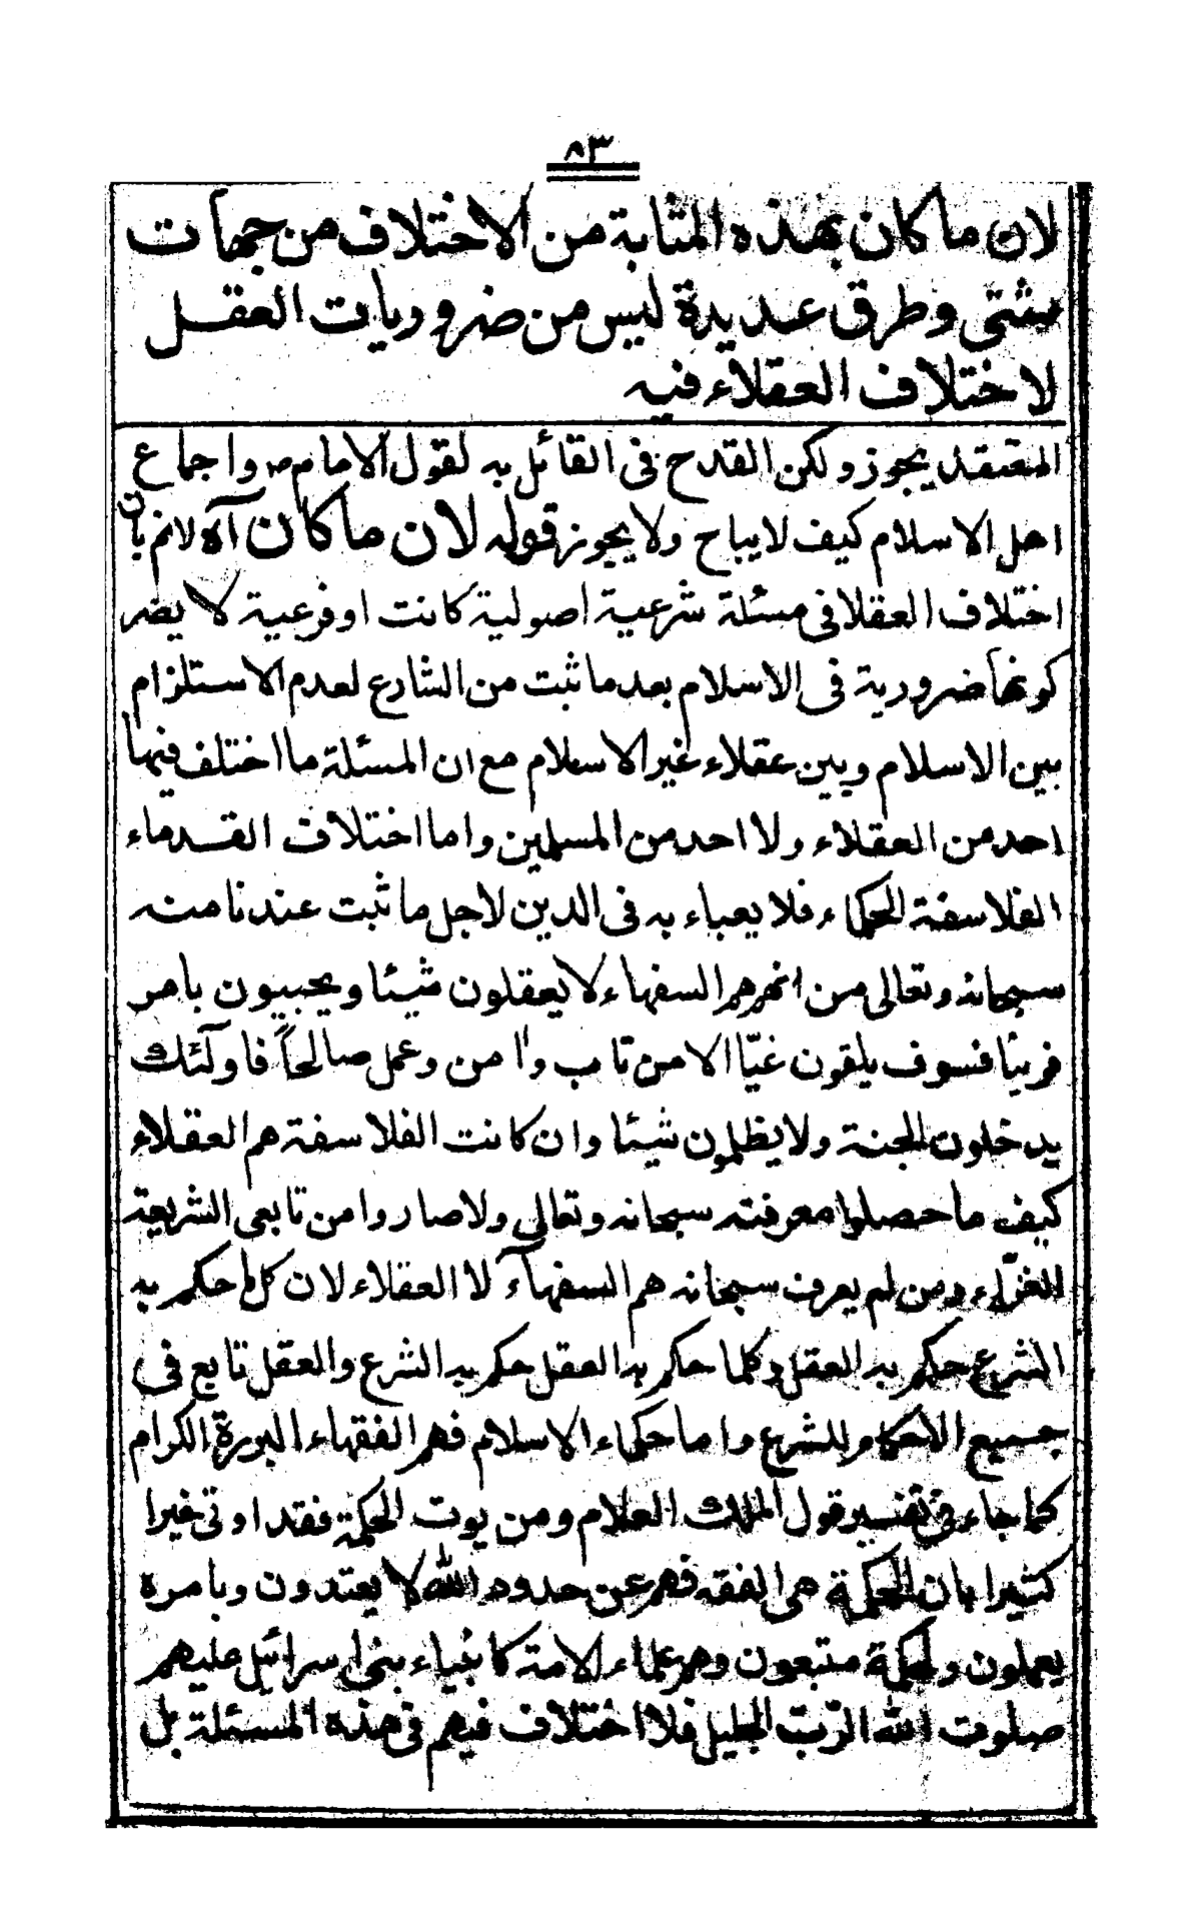 ٨٣
لان ما كان بهذه المثابة من الاختلاف من جهات
شتى وطرق عديدة ليس من ضروريات العقل
لاختلاف العقلاء فيه
المعتقد يجوز ولكن القدح فى القائل به لقول الامام واجماع
اهل الاسلام كيف لا يباح ولا يجوز قوله لان ما كان آه لانم بان
اختلاف العقلا فى مسئلة شرعية اصولية كانت او فرعية لا يضر
كونها ضرورية فى الاسلام بعد ما ثبت من الشارع لعدم الاستلزام
بين الاسلام وبين عقلاء غير الاسلام مع ان المسئلة ما اختلف فيها
احد من العقلاء ولا احد من المسلمين واما اختلاف القدماء
الفلاسفة الحكماء فلا يعباء به فى الدين لاجل ما ثبت عندنا منه
سبحانه وتعالى من انهم هم السفهاء لا يعقلون شيئا ويجيبون بامر
فريئا فسوف يلقون غيّا الا من تاب واٰمن وعمل صالحاً فاولٓئك
يدخلون الجنة ولا يظلمون شيئا وان كانت الفلاسفة هم العقلاء
كيف ما حصلوا معرفته سبحانه وتعالى ولا صاروا من تابعى الشريعة
الغرّاء ومن لم يعرف سبحانه هم السفهآء لا العقلاء لان كل ما حكم به
الشرع حكم به العقل وكلما حكم به العقل حكم به الشرع والعقل تابع فى
جميع الاحكام للشرع واما حكماء الاسلام فهم الفقهاء البررة الكرام
كما جاء فى تفسير قول الملك العلام ومن يوت الحكمة فقد اوتى خيرا
كثيرا بان الحكمة هى الفقه فهم عن حدود الله لا يعتدون وبامره
يعملون ولحكمة متبعون وهم علماء الامة كانبياء بنى اسرائيل عليهم
صلوت الله الرّب الجليل فلا اختلاف فيهم فى هذه المسئلة بل